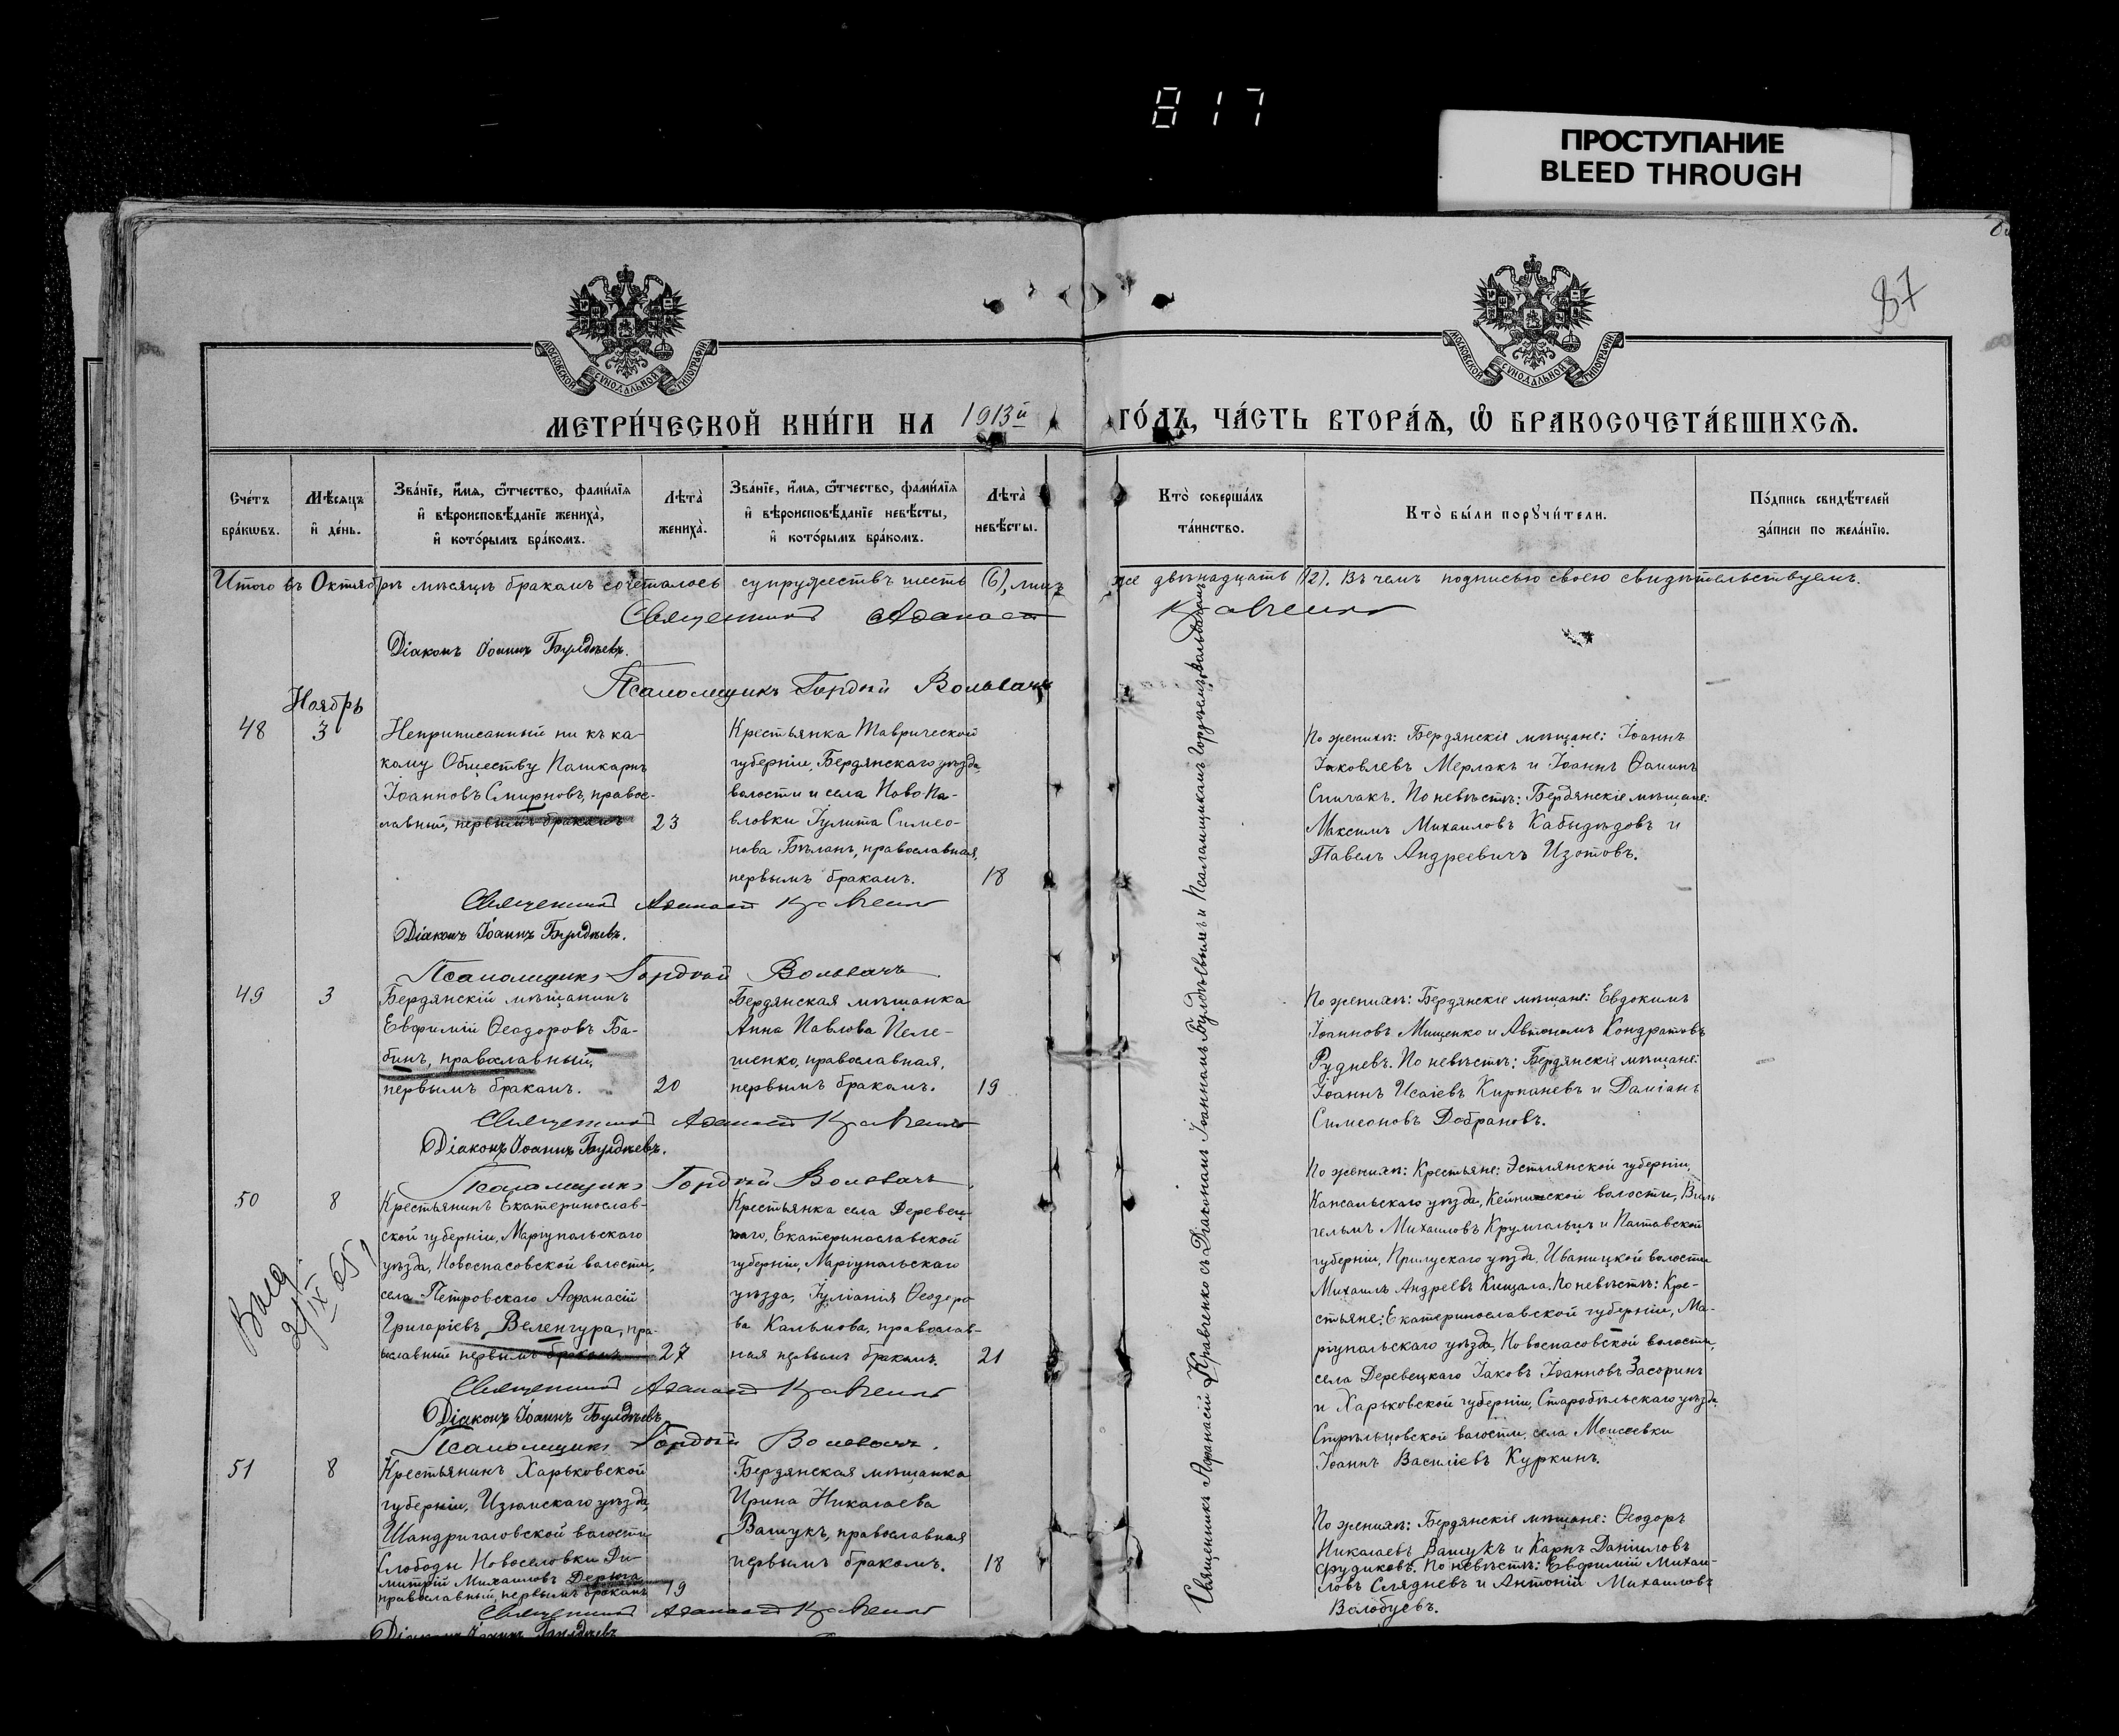 817
ПРОСТУПАНИЕ
BLEED THROUGH
87
МОСКОВСКОЙ СѴНОДАЛЬНОЙ ТИПОГРАФІИ
МОСКОВСКОЙ СѴНОДАЛЬНОЙ ТИПОГРАФІИ
МЕТРИ́ЧЕСКОЙ КНИ́ГИ НА 1913й ГО́ДЪ, ЧА́СТЬ ВТОРА́Ѧ, Ѡ҆ БРАКОСОЧЕТА́ВШИХСѦ.
Сче́тъ бра́кѡвъ.
Мѣ́сѧцъ и҆ де́нь.
Зва́нїе, и҆́мѧ, ѻ҆́тчество, фами́лїѧ и҆ вѣроисповѣ́данїе жениха̀, и҆ кото́рымъ бра́комъ.
Лѣта̀ жениха̀.
Зва́нїе, и҆́мѧ, ѻ҆́тчество, фами́лїѧ и҆ вѣроисповѣ́данїе невѣ́сты, и҆ кото́рымъ бра́комъ.
Лѣта̀ невѣ́сты.
Кто̀ соверша́лъ та́инство.
Кто̀ бы́ли порꙋчи́тели.
По́дпись свидѣ́телей за́писи по жела́нїю.
Итого въ Октябрѣ мѣсяцѣ бракомъ сочеталось супружествъ шесть (6), лицъ же двѣнадцать (12). Въ чемъ подписью своею свидѣтельствуемъ.
Священникъ Афанасій Кравченко
Діаконъ Іоаннъ Булдѣевъ.
Псаломщикъ Гордій Вольвачъ
Ноябрь
48
3
Неприписанный ни къ ка-
кому Обществу Пашкаръ
Іоанновъ Смирновъ, право-
славный, первымъ бракомъ
23
Крестьянка Таврической
губерніи, Бердянскаго уѣзда,
волости и села Ново Па-
вловки Іулита Симео-
нова Бѣланъ, православная,
первымъ бракомъ.
18
По женихѣ: Бердянскіе мѣщане: Іоаннъ
Іаковлевъ Мерлакъ и Іоаннъ Ѳоминъ
Спичакъ. По невѣстѣ: Бердянскіе мѣщане:
Максимъ Михаиловъ Кабыдѣдовъ и
Павелъ Андреевичъ Изотовъ.
Священникъ Афанасій Кравченко
Діаконъ Іоаннъ Булдѣевъ.
Псаломщикъ Гордій Вольвачъ.
49
3
Бердянскій мѣщанинъ
Евфимій Ѳеодоровъ Ба-
бинъ, православный,
первымъ бракомъ.
20
Бердянская мѣщанка
Анна Павлова Пеле-
шенко, православная,
первымъ бракомъ.
19
По женихѣ: Бердянскіе мѣщане: Евдокимъ
Іоанновъ Мищенко и Автономъ Кондратовъ
Рудневъ. По невѣстѣ: Бердянскіе мѣщане:
Іоаннъ Исаіевъ Кирпаневъ и Даміанъ
Симеоновъ Добрановъ.
Священникъ Афанасій Кравченко
Діаконъ Іоаннъ Булдѣевъ.
Псаломщикъ Гордій Вольвачъ.
50
8
Крестьянинъ Екатеринослав-
ской губерніи, Маріупольскаго
уѣзда, Новоспасовской волости,
села Петровскаго Афанасій
Григоріевъ Веленгура, пра-
вославный первымъ бракомъ
27
Крестьянка села Деревец-
каго, Екатеринославской
губерніи, Маріупольскаго
уѣзда, Іуліанія Ѳеодоро-
ва Калѣмова, православ-
ная первымъ бракомъ.
21
По женихѣ: Крестьяне: Эстлянской губерніи,
Капсальскаго уѣзда, волости, Виль-
гельмъ Михаиловъ и Полтавской
губерніи, Прилускаго уѣзда, Иваницкой волости
Михаилъ Андреевъ Кищала. По невѣстѣ: Кре-
стьяне: Екатеринославской губерніи, Ма-
ріупольскаго уѣзда, Новоспасовской волости,
села Деревецкаго Іаковъ Іоанновъ Засоринъ
и Харьковской губерніи, Старобѣльскаго уѣзда
Стрѣльцовской волости, села Моисеевки
Іоаннъ Василіевъ Куркинъ.
Священникъ Афанасій Кравченко
Діаконъ Іоаннъ Булдѣевъ.
Псаломщикъ Гордій Вольвачъ.
51
8
Крестьянинъ Харьковской
губерніи, Изюмскаго уѣзда,
Шандриголовской волости
Слободы Новоселовки Ди-
митрій Михаиловъ Дерюга
православный, первымъ бракомъ
19
Бердянская мѣщанка
Ирина Николаева
Вашукъ, православная
первымъ бракомъ.
18
По женихѣ: Бердянскіе мѣщане: Ѳеодоръ
Николаевъ Вашукъ и Карпъ Даніиловъ
Фудиковъ. По невѣстѣ: Евфимій Михаи-
ловъ Следневъ и Антоній Михаиловъ
Волобуевъ.
Священникъ Афанасій Кравченко
Діаконъ Іоаннъ Булдѣевъ
Священникъ Афанасій Кравченко съ Діакономъ Іоанномъ Булдѣевымъ и Псаломщикомъ Гордѣемъ Вольвачомъ